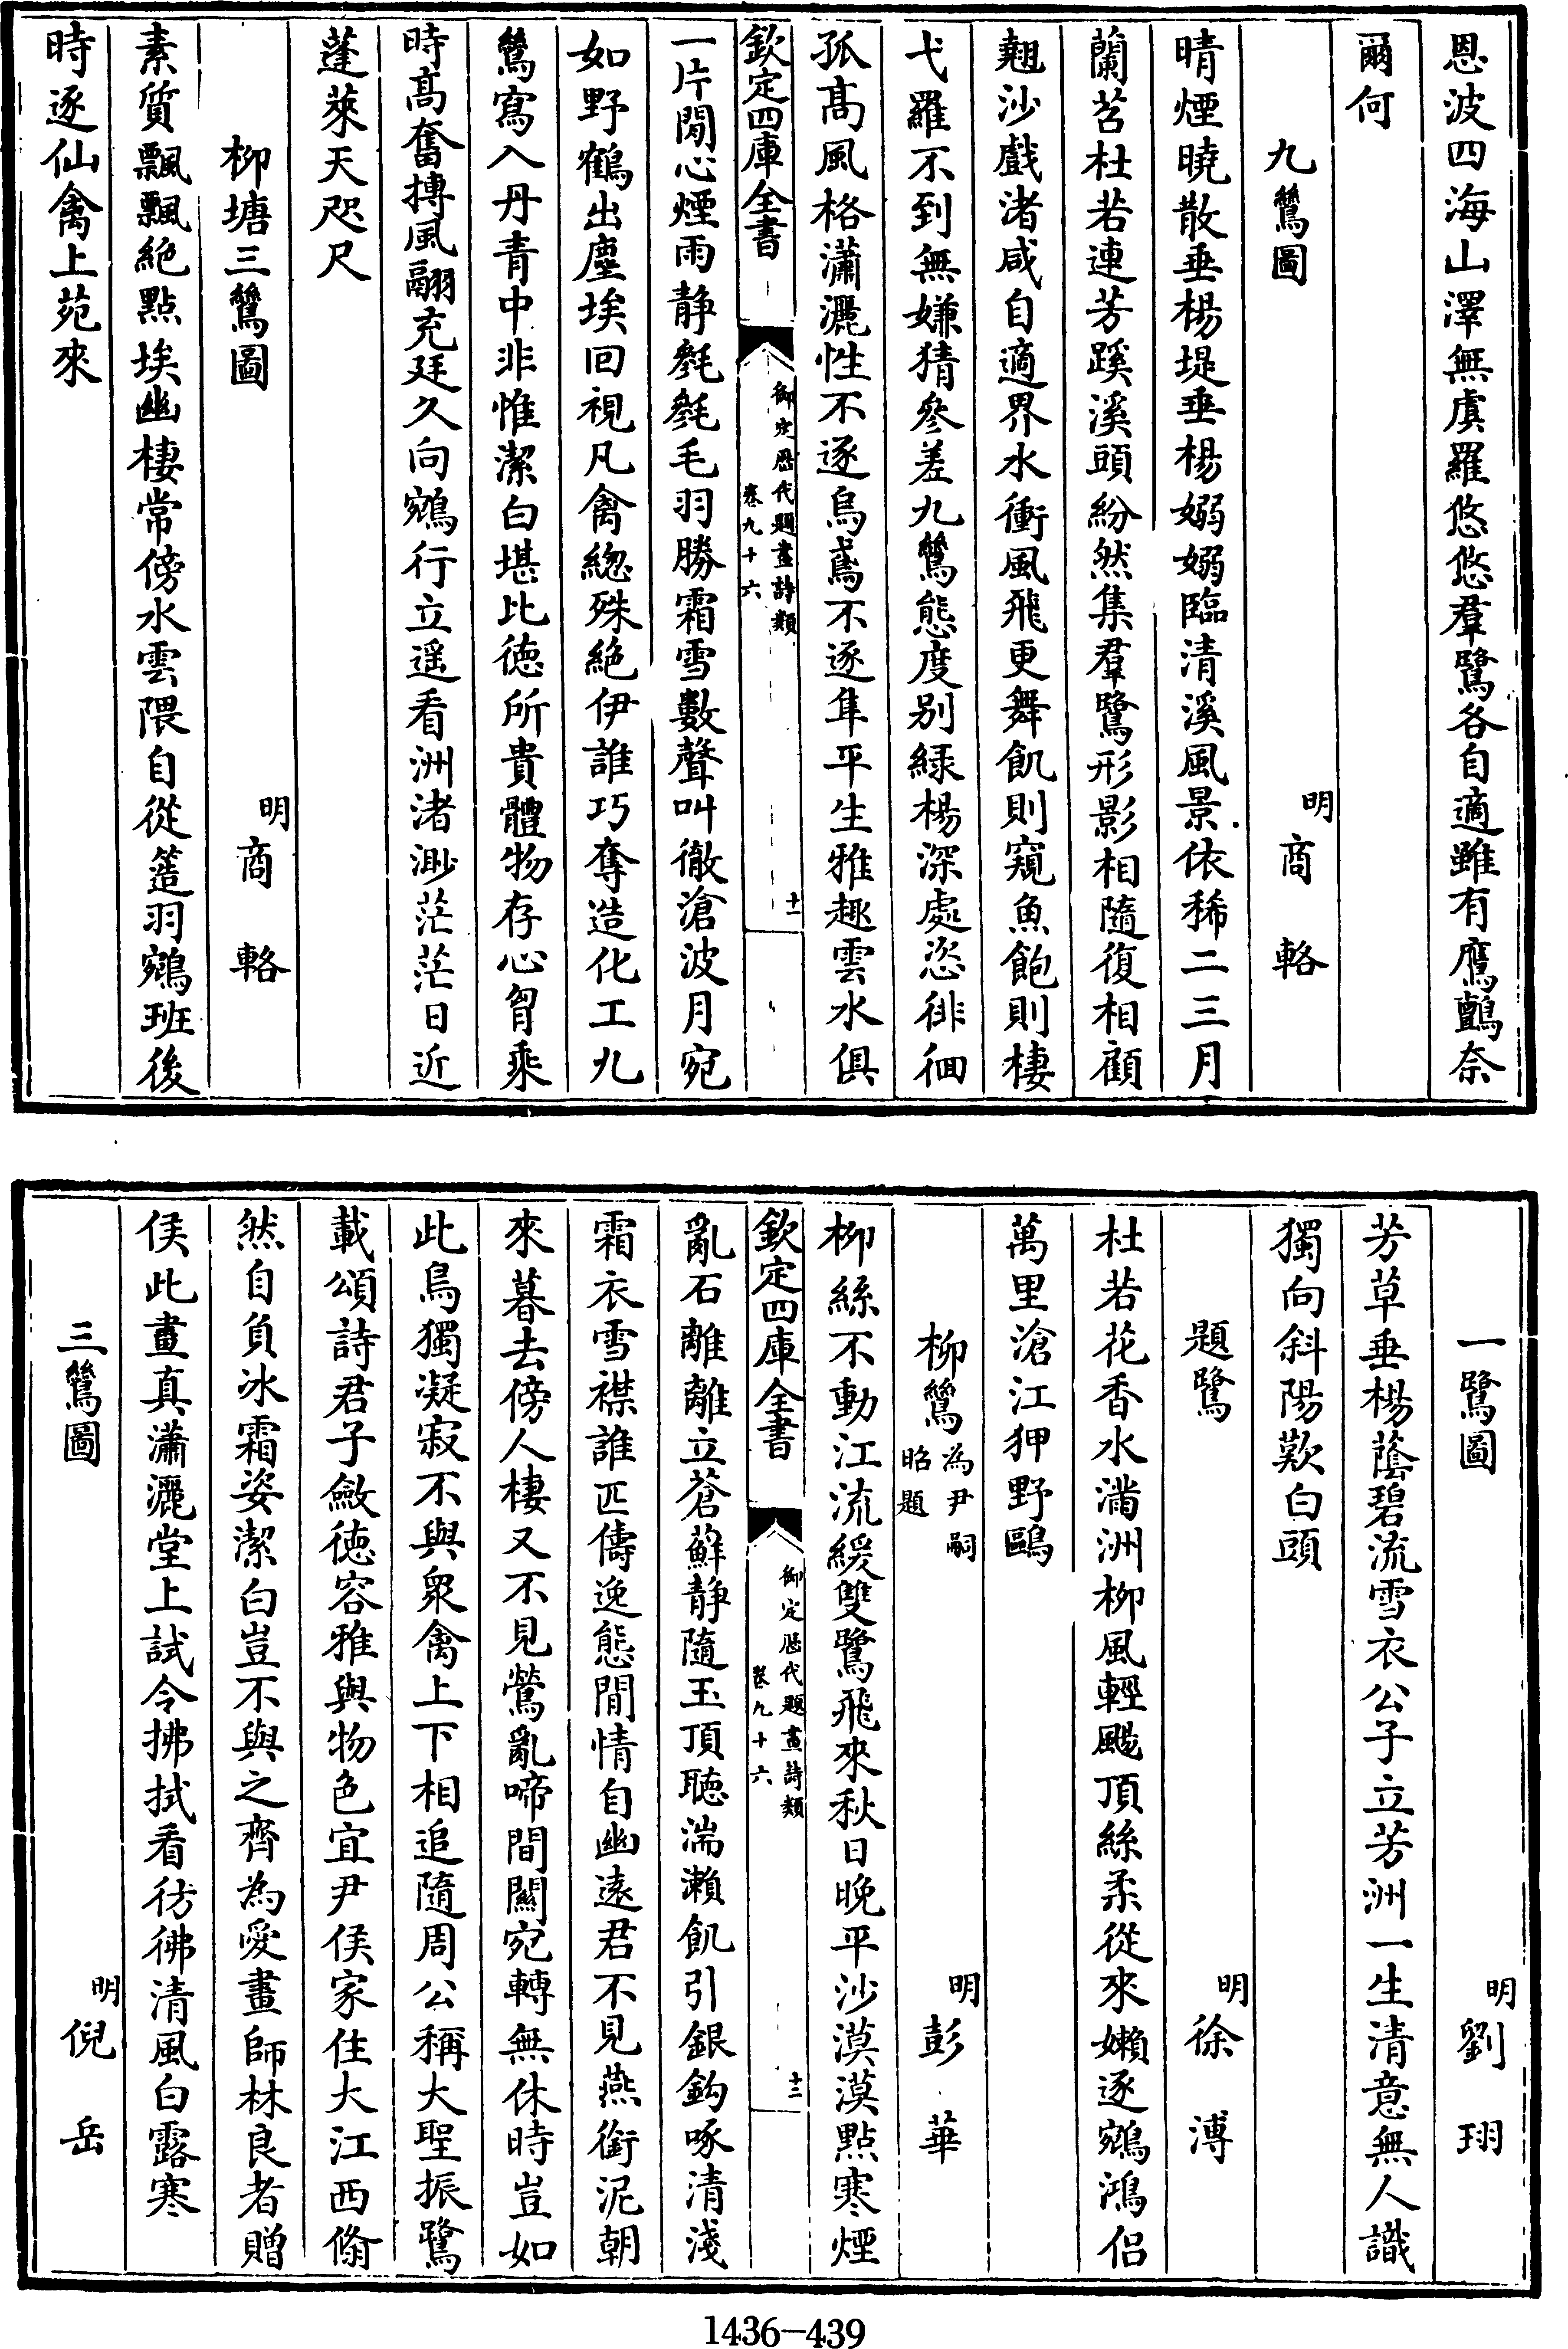 恩波四海山澤無虞羅悠悠羣鷺各自適雖有鷹鸇奈
爾何
九鷥圖
明商輅
晴煙曉散垂楊堤垂楊嫋嫋臨清溪風景依稀二三月
蘭苕杜若連芳蹊溪頭紛然集羣鷺形影相隨復相顧
翹沙戲渚咸自適界水衝風飛更舞飢則窺魚飽則棲
弋羅不到無嫌猜參差九鷥態度别緑楊深處恣徘徊
孤髙風格瀟灑性不逐烏鳶不逐隼平生雅趣雲水俱
欽定四庫全書
御定歴代題畫詩類
卷九十六
十一
一片閒心煙雨静毿毿毛羽勝霜雪數聲叫徹滄波月宛
如野鶴出塵埃回視凡禽總殊絶伊誰巧奪造化工九
鷥寫入丹青中非惟潔白堪比徳所貴體物存心胷乘
時髙奮摶風翮充廷久向鵷行立遥看洲渚渺茫茫日近
蓬萊天咫尺
柳塘三鷥圖
明商輅
素質飄飄絶點埃幽棲常傍水雲隈自從簉羽鵷班後
時逐仙禽上苑來
一鷺圖
明劉珝
芳草垂楊蔭碧流雪衣公子立芳洲一生清意無人識
獨向斜陽歎白頭
題鷺
明徐溥
杜若花香水滿洲柳風輕颺頂絲柔從來嬾逐鵷鴻侣
萬里滄江狎野鷗
柳鷥為尹嗣昭題
明彭華
柳絲不動江流緩雙鷺飛來秋日晚平沙漠漠點寒煙
欽定四庫全書
御定歴代題畫詩類
卷九十六
十二
亂石離離立蒼蘚静隨玉頂聽湍瀨飢引銀鈎啄清淺
霜衣雪襟誰匹儔逸態閒情自幽遠君不見燕銜泥朝
來暮去傍人棲又不見鶯亂啼間關宛轉無休時豈如
此鳥獨凝寂不與衆禽上下相追隨周公稱大聖振鷺
載頌詩君子斂徳容雅與物色宜尹侯家住大江西翛
然自負冰霜姿潔白豈不與之齊為愛畫師林良者贈
侯此畫真瀟灑堂上試令拂拭看彷彿清風白露寒
三鷥圖
明倪岳
1436-439